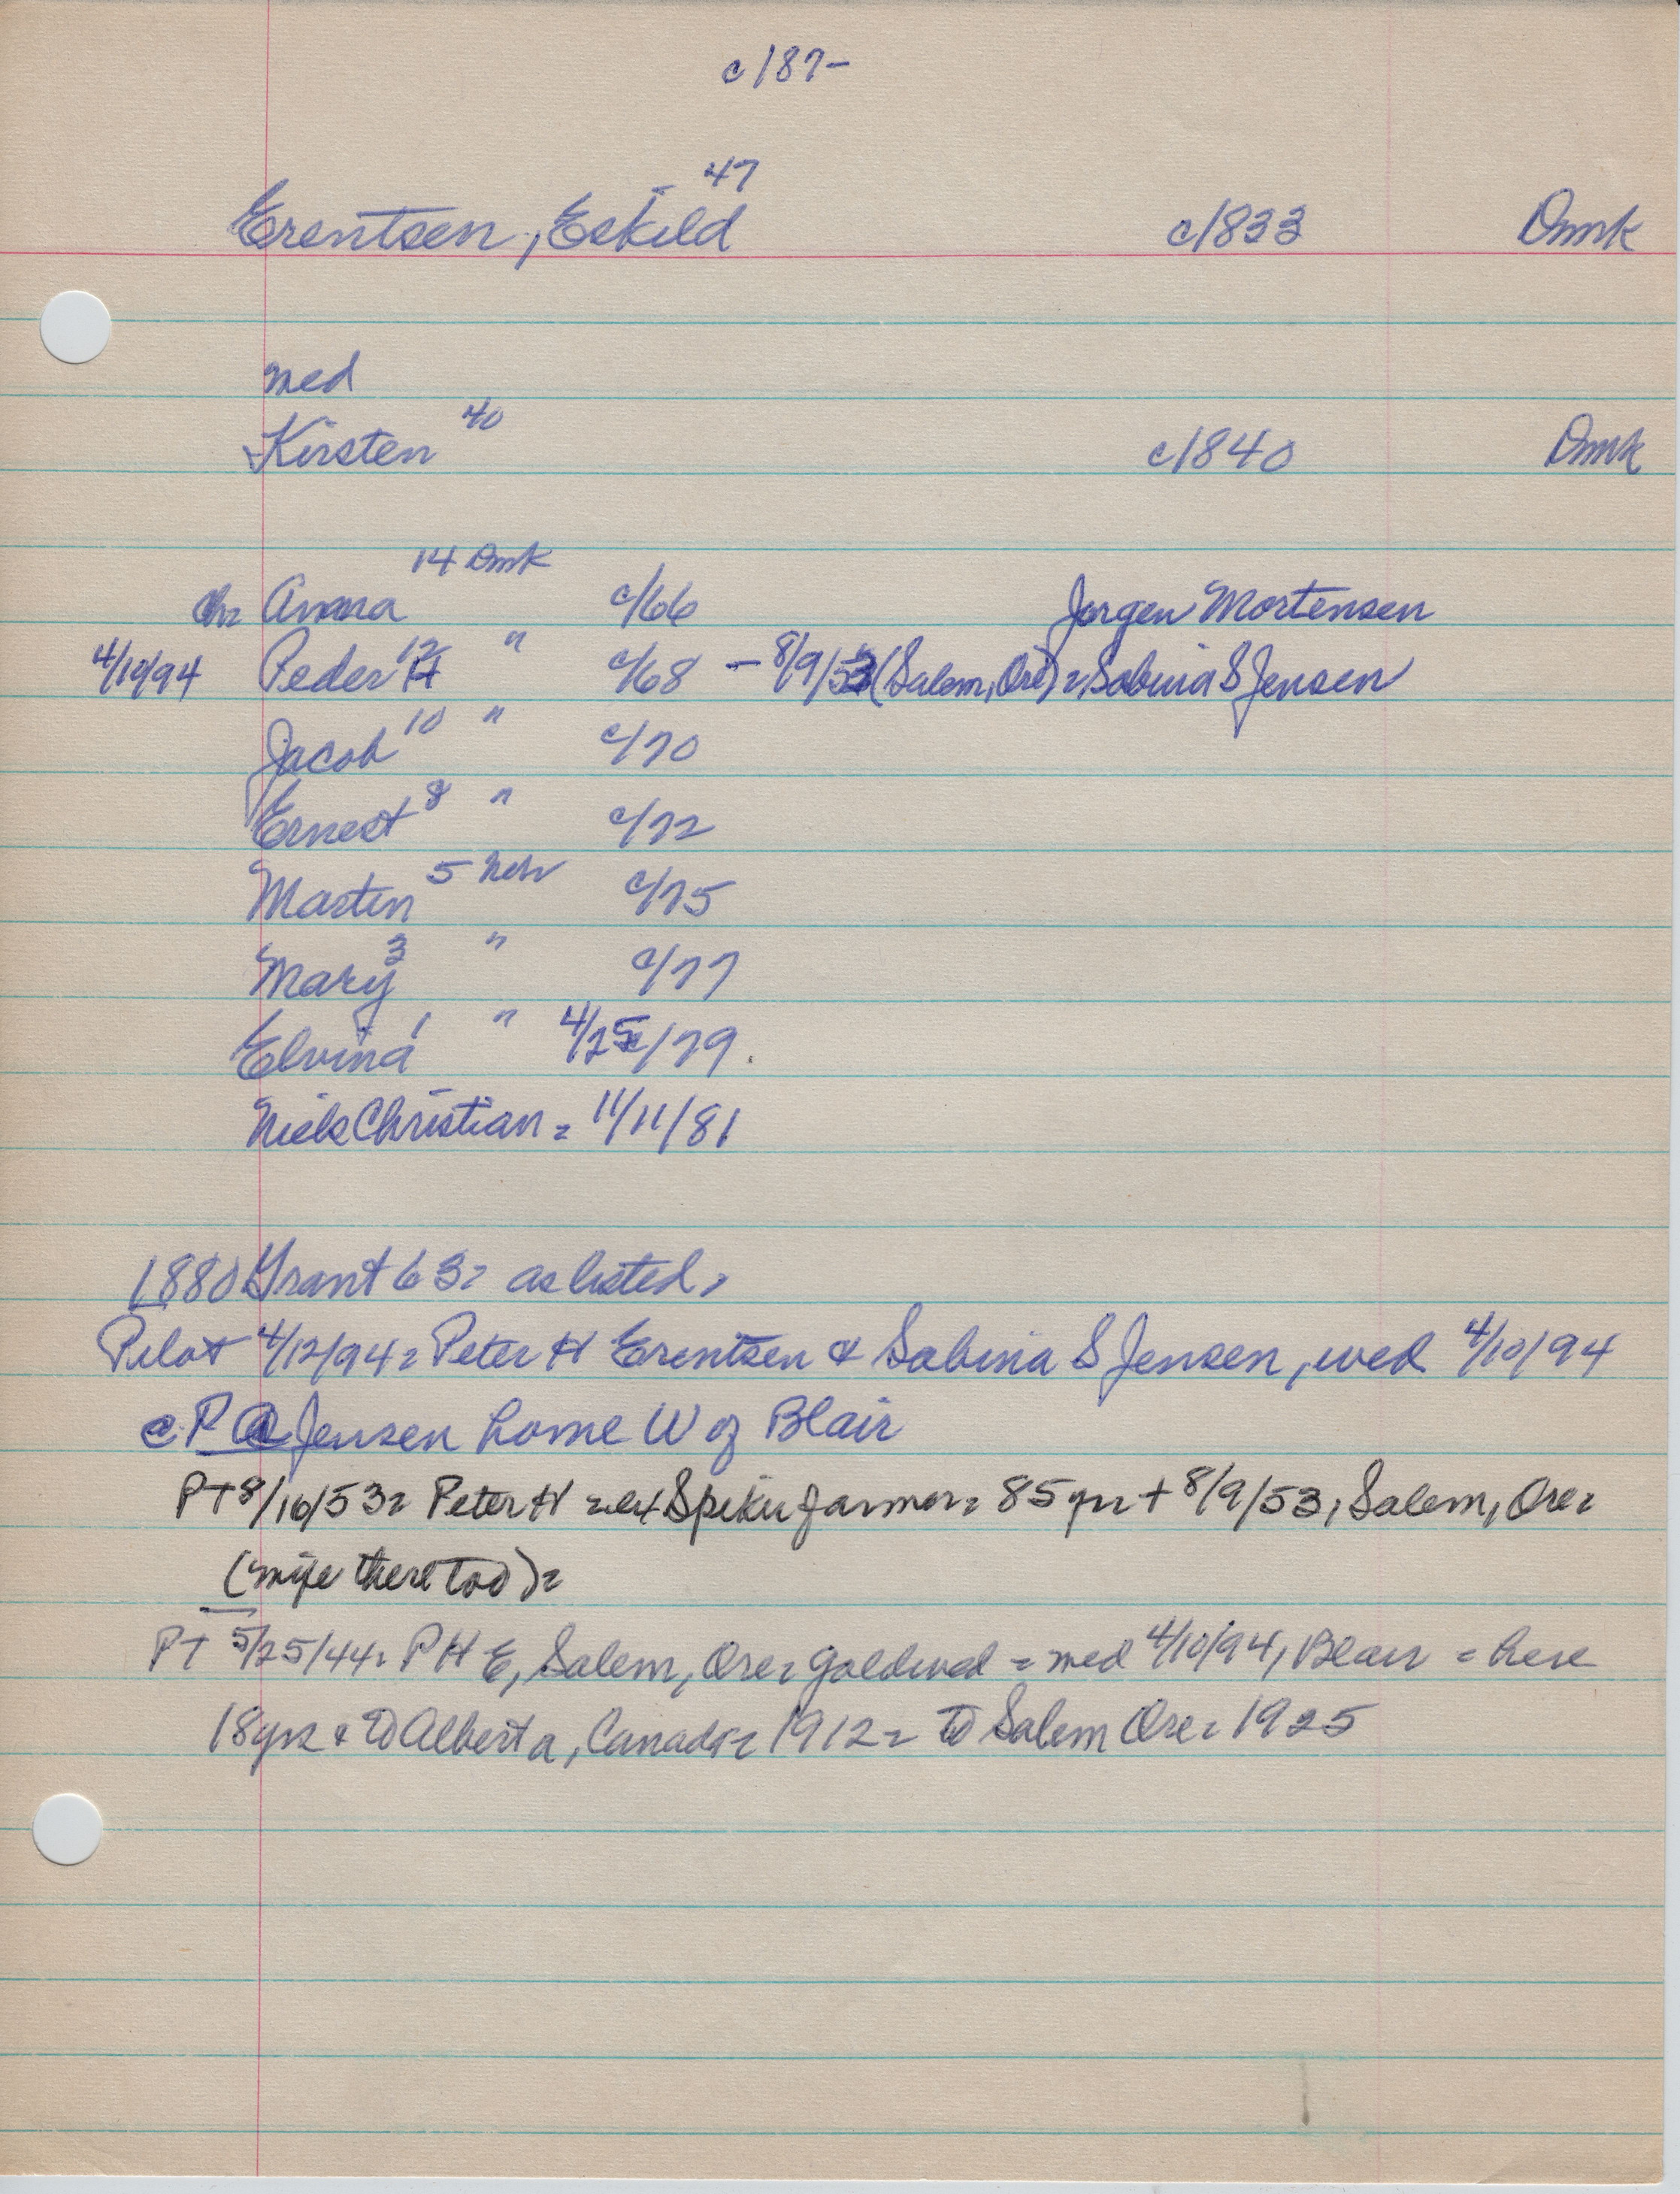 c187-
47
Erentsen, Eskild c1833 Dmk
med
40
Kirsten c1840 Dmk
14 Dmk
Ch= Anna c/66 Jorgen Mortensen
4/10/94 Peder H 12 " c/68 - 8/9/53 (Salem, Ore) = Sabina S Jensen
Jacob 10 " c/70
Ernest 8 " c/72
Martin 5 Neb c/75
Mary 3 " c/77
Elvina 1 " 4/25/79.
Niels Christian = 11/11/81
1880 Grant 63= as listed,
Pilot 4/12/94= Peter H Erentsen & Sabina S Jensen, wed 4/10/94
@ P Jensen home W of Blair
PT 8/10/53= Peter H = ex Spiker farmer= 85 yrs + 8/9/53, Salem, Ore=
(wife there too)=
PT 5/25/44= P H E, Salem, Ore= goldwed = med 4/10/94, Blair = here
18 yrs & to Alberta, Canada= 1912= to Salem Ore= 1925